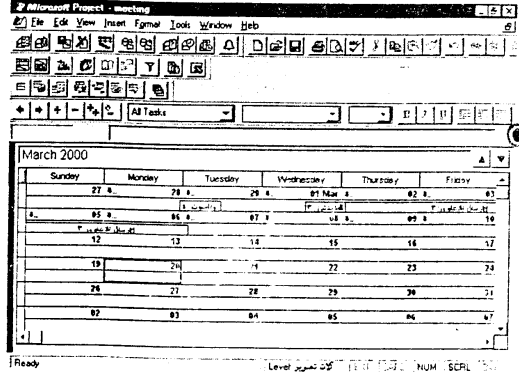 Microsoft Project - meeting
File Edit View Insert Format Tools Window Help
All Tasks
March 2000
Sunday Monday Tuesday Wednesday Thursday Friday
27 28 29 01 Mar 02 03
05 06 07 08 09 10
12 13 14 15 16 17
19 20 21 22 23 24
26 27 28 29 30 31
02 03 04 05 06 07
Ready Level NUM SCRL